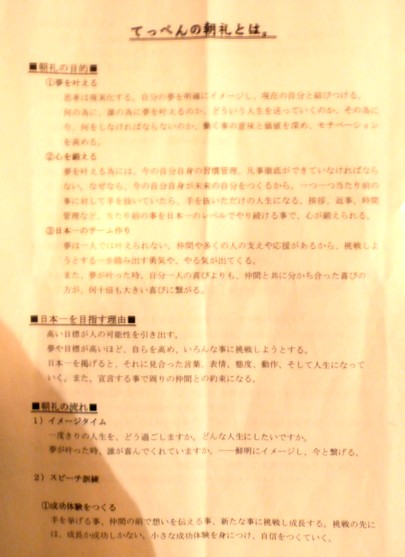 てっぺんの朝礼とは。
■朝礼の目的■
①夢を叶える
思考は現実化する。自分の夢を明確にイメージし、現在の自分と結びつける。
何の為に、誰の為に夢を叶えるのか、どういう人生を送っていくのか、その為に
今、何をしなければならないのか、働く事の意味と価値を深め、モチベーション
を高める。
②心を鍛える
夢を叶える為には、今の自分自身の習慣管理、凡事徹底ができていなければなら
ない。なぜなら、今の自分自身が未来の自分をつくるから。一つ一つ当たり前の
事に対して手を抜いていたら、手を抜いただけの人生になる。挨拶、返事、時間
管理など、当たり前の事を日本一のレベルでやり続ける事で、心が鍛えられる。
③日本一のチーム作り
夢は一人では叶えられない。仲間や多くの人の支えや応援があるから、挑戦しよ
うとする一歩踏み出す勇気や、やる気が出てくる。
また、夢が叶った時、自分一人の喜びよりも、仲間と共に分かち合った喜びの
方が、何十倍も大きい喜びに繋がる。
■日本一を目指す理由■
高い目標が人の可能性を引き出す。
夢や目標が高いほど、自らを高め、いろんな事に挑戦しようとする。
日本一を掲げると、それに見合った言葉、表情、態度、動作、そして人生になって
いく。また、宣言する事で周りの仲間との約束になる。
■朝礼の流れ■
1）イメージタイム
一度きりの人生を、どう過ごしますか。どんな人生にしたいですか。
夢が叶った時、誰が喜んでくれていますか。――鮮明にイメージし、今と繋げる。
2）スピーチ訓練
①成功体験をつくる
手を挙げる事、仲間の前で想いを伝える事、新たな事に挑戦し成長する。挑戦の先に
は、成長か成功しかない。小さな成功体験を身につけ、自信をつくっていく。